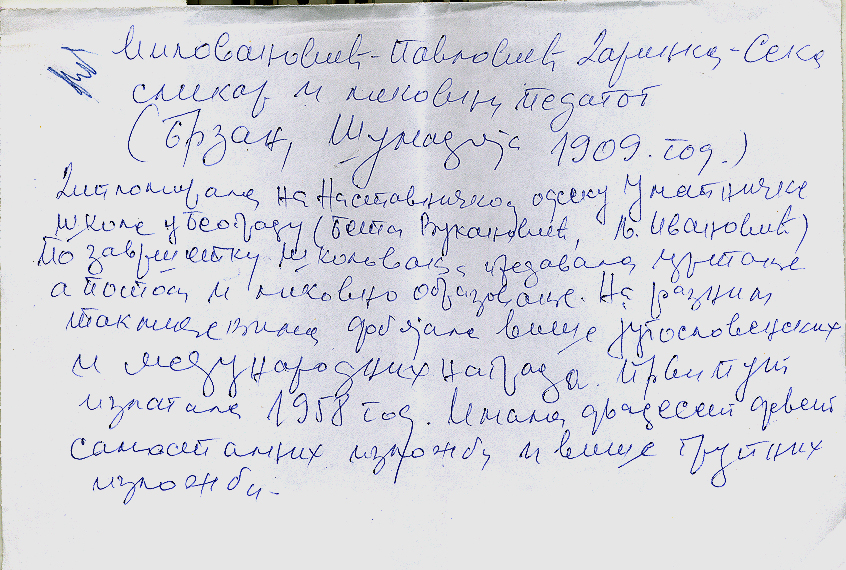 Миловановић-Павловић Зоринка-Сека
сликар и ликовни педагог
(Брзан, Шумадија 1909. год.)
Дипломирала на Наставничком одсеку Уметничке
школе у Београду (Бета Вукановић, Љ. Ивановић)
По завршетку школовања предавала цртање
а потом и ликовно образовање. На разним
такмичењима добијала више југословенских
и међународних награда. Први пут
излагала 1958 год. Имала двадесет девет
самосталних изложби и више групних
изложби.